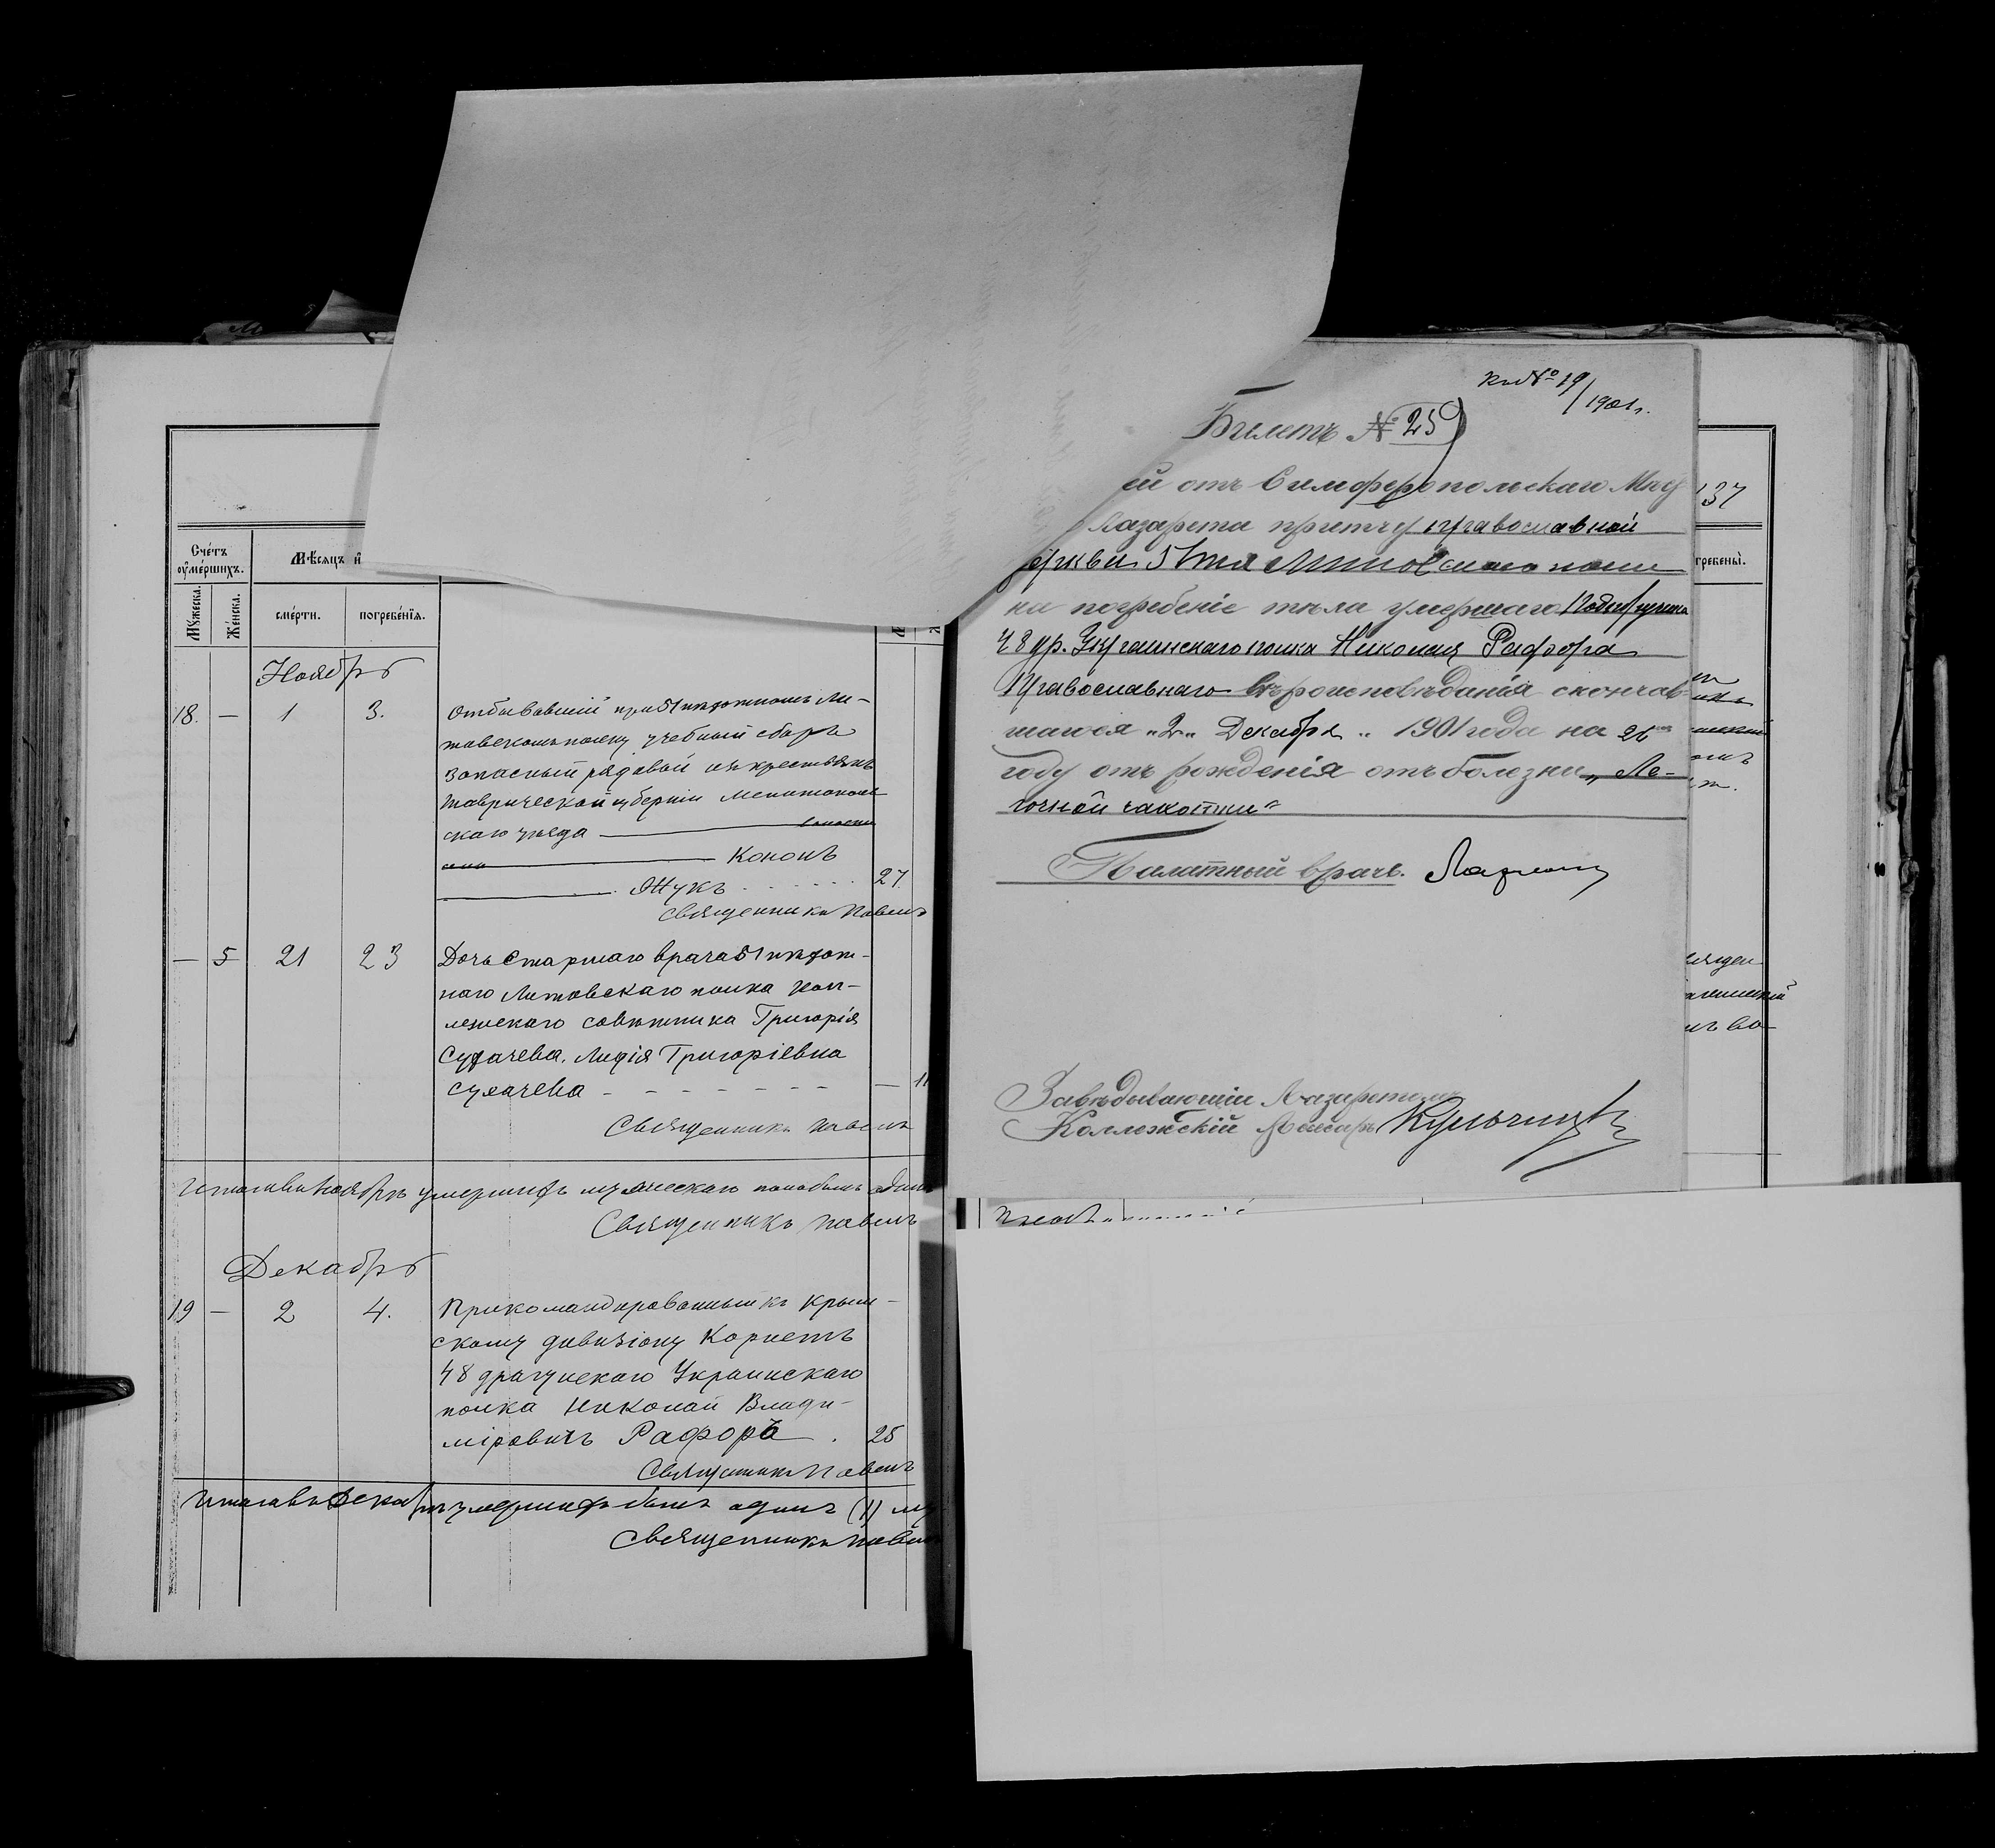 Счетъ оумершихъ.
Мѣсяцъ и
Мужеска.
Женска.
смерти.
погребенія.
Ноябрь
18. — 1 3. Отбывавшій при 51 пѣхотномъ Ли-
товскомъ полку учебный сборъ
запасный рядовой изъ крестьянъ
Таврической губерніи Мелитополь
скаго уѣзда волости
села Кононъ
Жукъ 27.
Священникъ Павелъ
— 5 21 23 Дочь Старшаго врача 51 пѣхот-
наго Литовскаго полка кол-
лежскаго совѣтника Григорія
Сухачева, Лидія Григоріевна
Сухачева — 11
Священникъ Павелъ
Итого въ Ноябрѣ умершихъ мужескаго пола былъ одинъ
Священникъ Павелъ
Декабрь
19 — 2 4. Прикомандированный къ Крым-
скому дивизіону Корнетъ
48 драгунскаго Украинскаго
полка Николай Влади-
міровичъ Рафоръ . 25
Священникъ Павелъ
Итого въ Декабрѣ умершихъ былъ одинъ (1) му
Священникъ Павелъ
Къ № 19/1901 г.
Билетъ № 259
ей отъ Симферопольскаго
Лазарета притчу православной
церкви 51 пѣх Литовскаго полка
на погребеніе тѣла умершаго
48 др. Украинскаго полка Николая Рафора
Православнаго вѣроисповѣданія скончав-
шагося „2„ Декабря „ 1901 года на 26
году отъ рожденія отъ болѣзни „Ле-
гочной чахотки"
Палатный врачъ.
Завѣдывающій Лазаретомъ
Коллежскій
137
гребены.